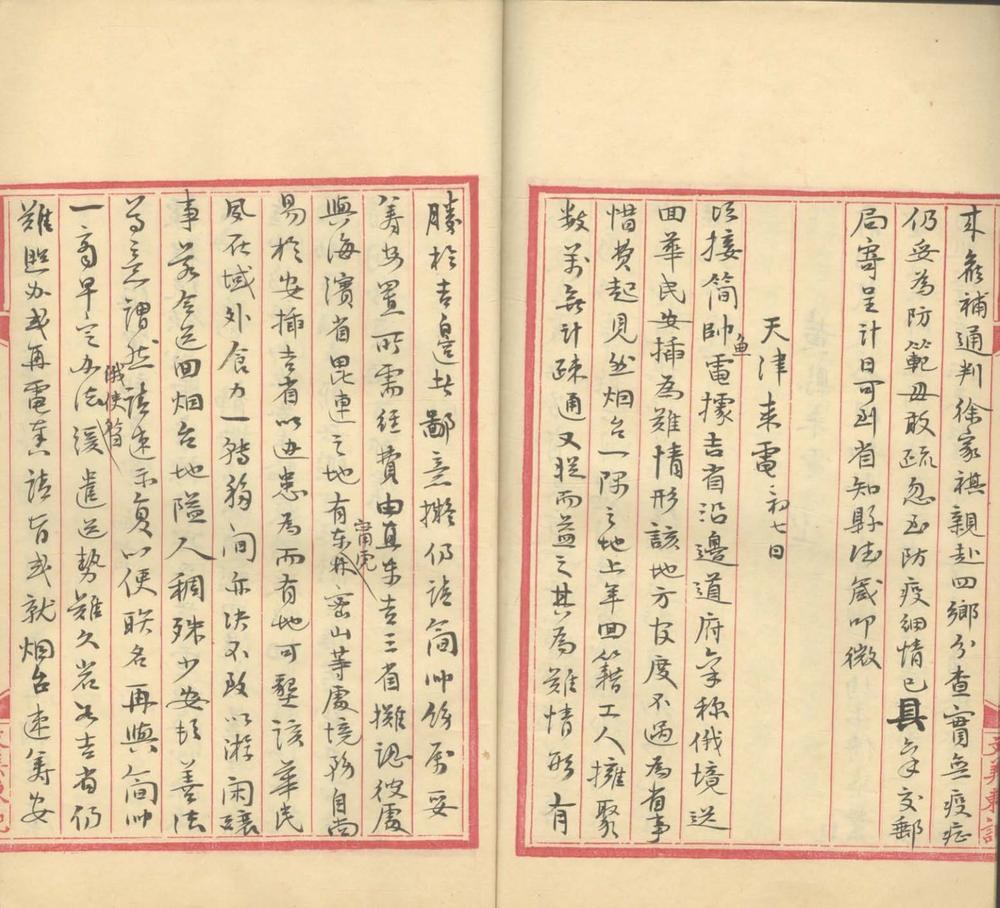 來飭補通判徐家祺親赴四鄉分查實無疫症
仍妥為防範毋敢疏忽至防疫細情已具稟交郵
局寄呈計日可到省知縣德箴叩微
天津來電 初七日
頃接簡帥魚電據吉省沿邊道府稟稱俄境送
回華民安插為難情形該地方官度不過為省事
惜費起見然烟台一隅之地上年回籍工人擁聚
數萬無計疎通又從而益之其為難情形有
勝於吉邊者鄙意擬仍請簡帥飭屬妥
籌安置所需經費由直東吉三省攤認彼處
與海濱省毘連之地有東林甯虎密山等處境務自尚
易於安插吉省以毋患為而有地可墾該華民
風在域外食力一轉移間亦決不致以游閑釀
事若令送回烟台地隘人稠殊少安頓善法
尊意謂然請速示复以便联名再與簡帥
一商早定办法俄使簽緩遣送勢難久若如吉省仍
難照办或再電奏請旨或就烟台速籌安